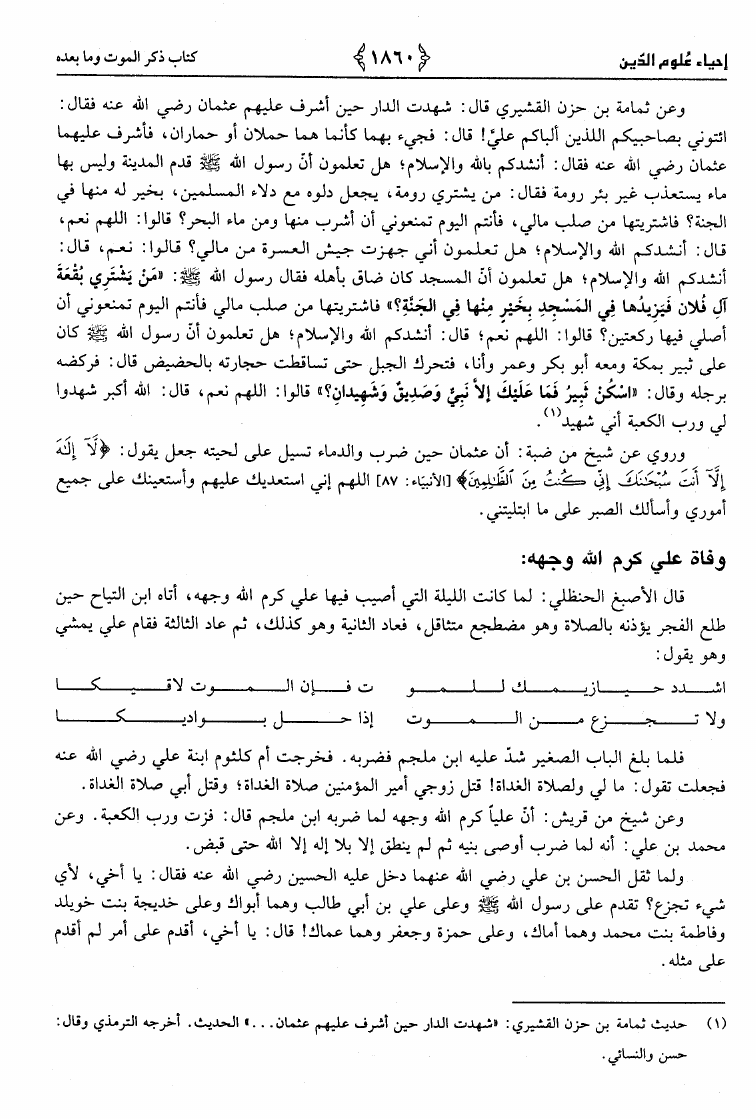 إحياء عُلوم الدّين ﴿١٨٦٠﴾ كتاب ذكر الموت وما بعده
وعن ثمامة بن حزن القشيري قال: شهدت الدار حين أشرف عليهم عثمان رضي الله عنه فقال:
ائتوني بصاحبيكم اللذين ألباكم عليَّ! قال: فجيء بهما كأنما هما حملان أو حماران، فأشرف عليهما
عثمان رضي الله عنه فقال: أنشدكم بالله والإسلام؛ هل تعلمون أنّ رسول الله ﷺ قدم المدينة وليس بها
ماء يستعذب غير بئر رومة فقال: من يشتري رومة، يجعل دلوه مع دلاء المسلمين، بخير له منها في
الجنة؟ فاشتريتها من صلب مالي، فأنتم اليوم تمنعوني أن أشرب منها ومن ماء البحر؟ قالوا: اللهم نعم،
قال: أنشدكم الله والإسلام؛ هل تعلمون أني جهزت جيش العسرة من مالي؟ قالوا: نعم، قال:
أنشدكم الله والإسلام؛ هل تعلمون أنّ المسجد كان ضاق بأهله فقال رسول الله ﷺ: «مَنْ يَشْتَرِي بُقْعَةَ
آلِ فُلَان فَيَزِيدُها فِي المَسْجِدِ بِخَيْرٍ مِنْها فِي الجَنَّةِ؟» فاشتريتها من صلب مالي فأنتم اليوم تمنعوني أن
أصلي فيها ركعتين؟ قالوا: اللهم نعم؛ قال: أنشدكم الله والإسلام؛ هل تعلمون أنّ رسول الله ﷺ كان
على ثبير بمكة ومعه أبو بكر وعمر وأنا، فتحرك الجبل حتى تساقطت حجارته بالحضيض قال: فركضه
برجله وقال: «اسْكُنْ ثَبِيرُ فَمَا عَلَيْكَ إلاَّ نَبِيٌّ وَصَدِيقٌ وَشَهِيدانِ؟» قالوا: اللهم نعم، قال: الله أكبر شهدوا
لي ورب الكعبة أني شهيد(١).
وروي عن شيخ من ضبة: أن عثمان حين ضرب والدماء تسيل على لحيته جعل يقول: ﴿لَّآ إِلَٰهَ
إِلَّآ أَنتَ سُبْحَٰنَكَ إِنِّي كُنتُ مِنَ ٱلظَّٰلِمِينَ﴾ [الأنبيَاء: ٨٧] اللهم إني استعديك عليهم وأستعينك على جميع
أموري وأسألك الصبر على ما ابتليتني.
وفاة علي كرم الله وجهه:
قال الأصبغ الحنظلي: لما كانت الليلة التي أصيب فيها علي كرم الله وجهه، أتاه ابن التياح حين
طلع الفجر يؤذنه بالصلاة وهو مضطجع متثاقل، فعاد الثانية وهو كذلك، ثم عاد الثالثة فقام علي يمشي
وهو يقول:
اشدد حيازيمك للمو ت فإن الموت لاقيكا
ولا تجزع من الموت إذا حل بواديكا
فلما بلغ الباب الصغير شدّ عليه ابن ملجم فضربه. فخرجت أم كلثوم ابنة علي رضي الله عنه
فجعلت تقول: ما لي ولصلاة الغداة! قتل زوجي أمير المؤمنين صلاة الغداة؛ وقتل أبي صلاة الغداة.
وعن شيخ من قريش: أنّ علياً كرم الله وجهه لما ضربه ابن ملجم قال: فزت ورب الكعبة. وعن
محمد بن علي: أنه لما ضرب أوصى بنيه ثم لم ينطق إلا بلا إله إلا الله حتى قبض.
ولما ثقل الحسن بن علي رضي الله عنهما دخل عليه الحسين رضي الله عنه فقال: يا أخي، لأي
شيء تجزع؟ تقدم على رسول الله ﷺ وعلى علي بن أبي طالب وهما أبواك وعلى خديجة بنت خويلد
وفاطمة بنت محمد وهما أماك، وعلى حمزة وجعفر وهما عماك! قال: يا أخي، أقدم على أمر لم أقدم
على مثله.
(١) حديث ثمامة بن حزن القشيري: «شهدت الدار حين أشرف عليهم عثمان...» الحديث. أخرجه الترمذي وقال:
حسن والنسائي.